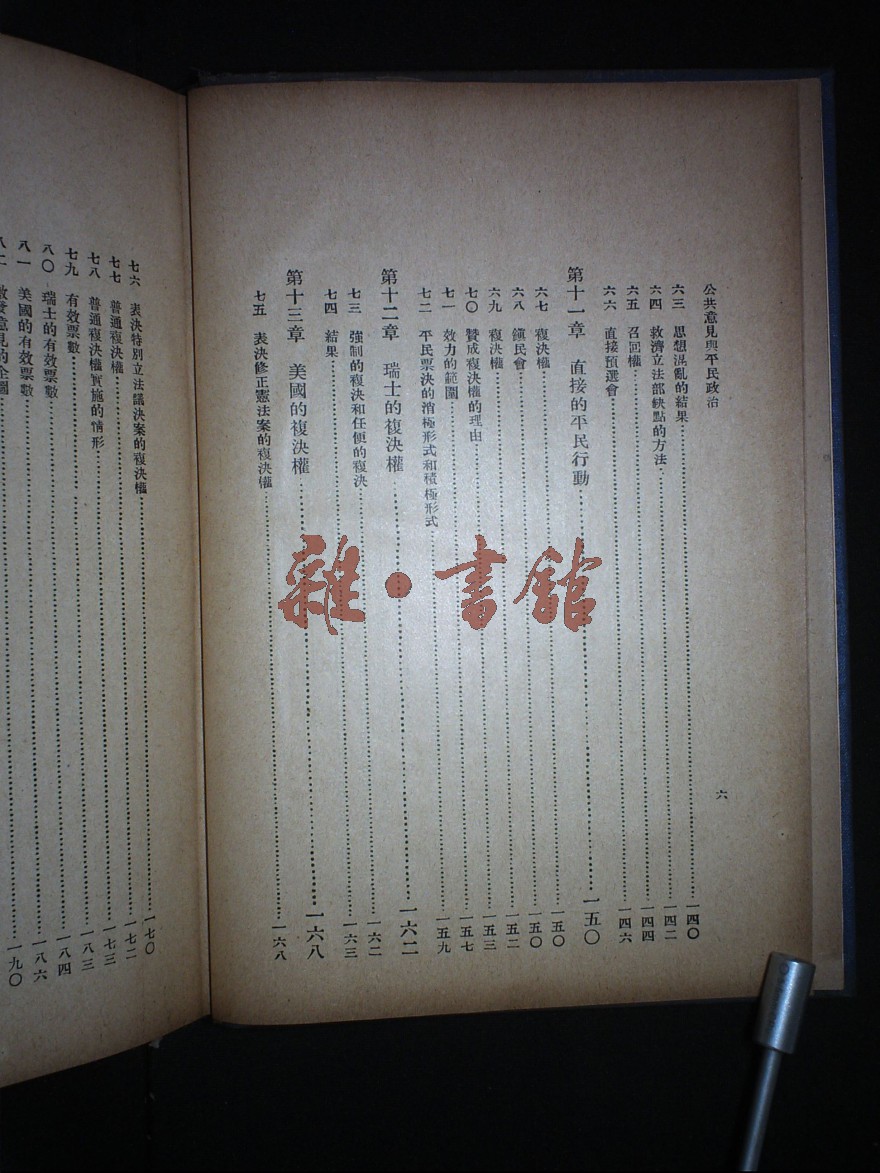 公共意見與平民政治
六
六三 思想混亂的結果 一四〇
六四 救濟立法部缺點的方法 一四二
六五 召回權 一四四
六六 直接預選會 一四六
第十一章 直接的平民行動 一五〇
六七 複決權 一五〇
六八 鎮民會 一五〇
六九 複決權 一五二
七〇 贊成複決權的理由 一五三
七一 效力的範圍 一五七
七二 平民票決的消極形式和積極形式 一五九
第十二章 瑞士的複決權 一六二
七三 強制的複決和任便的複決 一六二
七四 結果 一六三
第十三章 美國的複決權 一六八
七五 表決修正憲法案的複決權 一六八
七六 表決特別立法議決案的複決權 一七〇
七七 普通複決權 一七二
七八 普通複決權實施的情形 一七三
七九 有效票數 一八三
八〇 瑞士的有效票數 一八四
八一 美國的有效票數 一八六
意見的企圖 一九〇
雜·書館